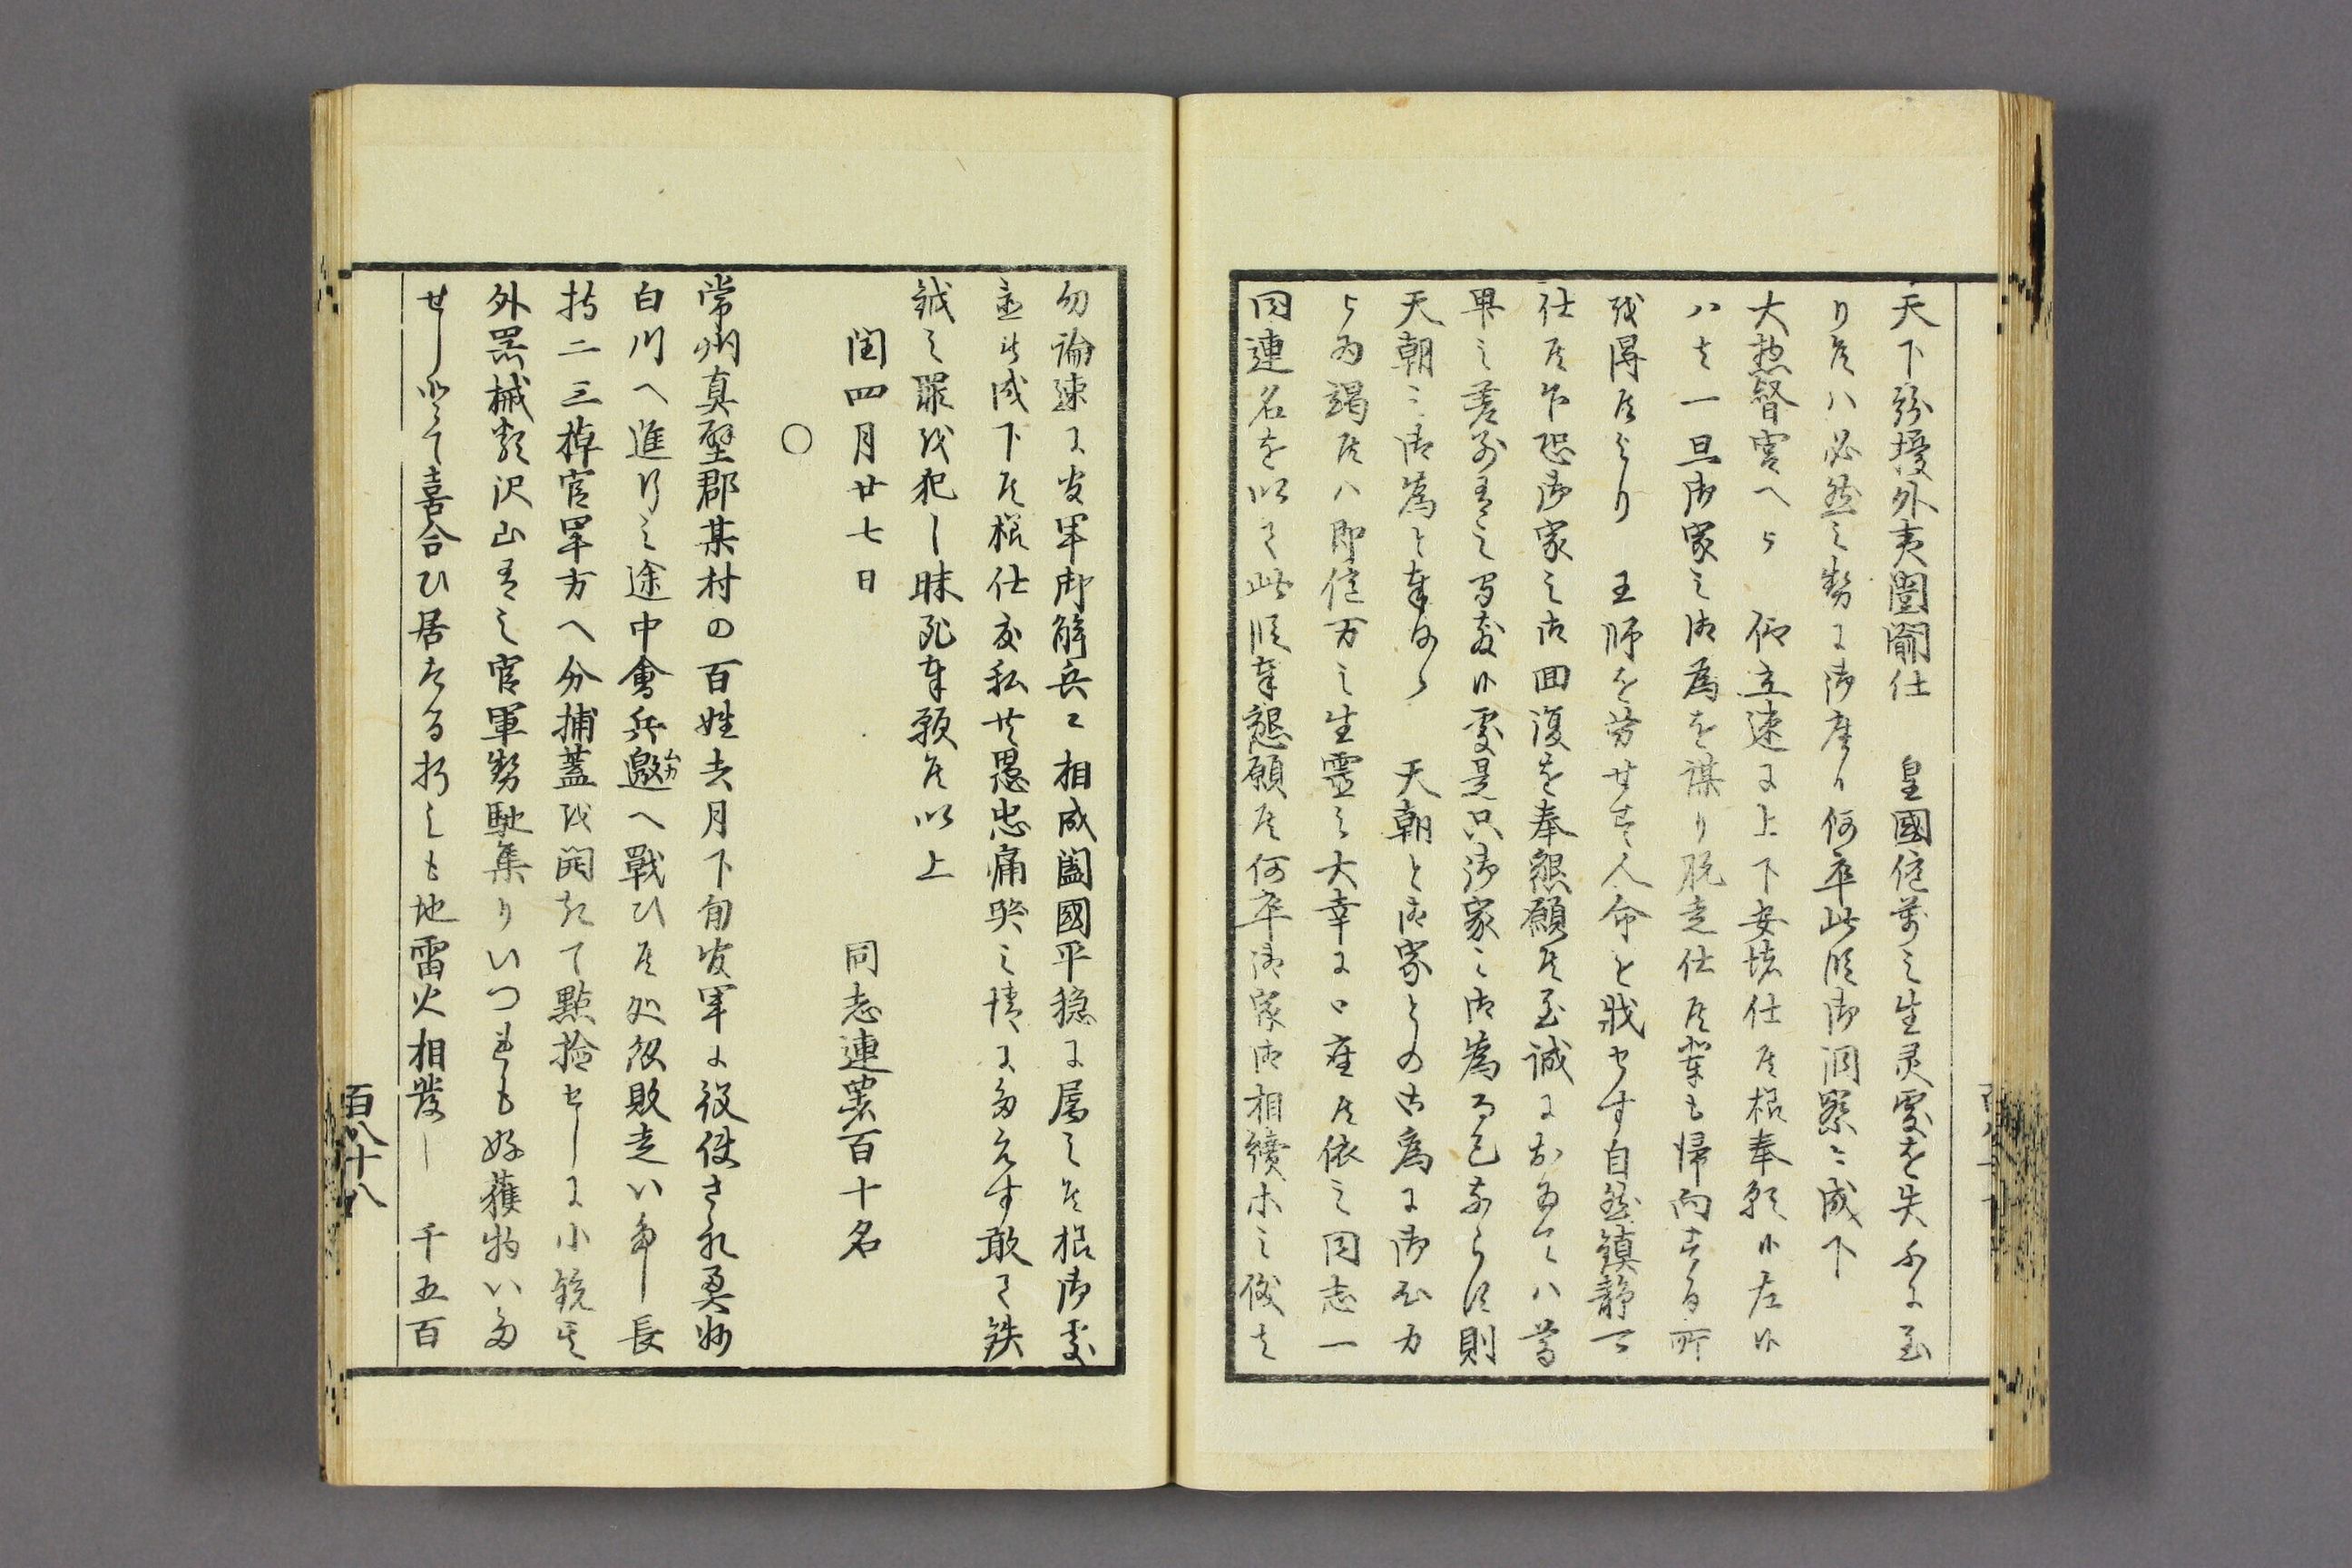 天下紛擾外夷闓闔仕　皇國億萬之生灵處を失ふに至
り候ハ必然之勢に御座候何卒此段御洞察被成下
大惣督宮へ被　仰立速に上下安堵仕候様奉願候左候
ハヽ一旦御家之御為を謀り脱走仕候輩も帰向する所
を得候より　王師を労せす人命を戕せす自然鎮静可
仕候乍恐御家之御回復を奉懇願候至誠におゐてハ尊
卑之差別有之間敷候處是只御家之御為而已ならす則
天朝之御為と奉存候　天朝と御家との御為に御尽力
被為竭候ハ即億万之生霊之大幸に御座候依之同志一
同連名を以て此段奉懇願候何卒御家御相續等之儀も
勿論速に官軍御解兵に相成闔國平穏に属し候様御處
置被成下候様仕度私共愚忠痛哭之情に勝へす敢て鈇
鉞之罪を犯し昧死奉願候以上
閏四月廿七日
同志連署百十名
〇
常州真壁郡某村の百姓去月下旬官軍に役使され奥州
白川へ進行之途中會兵邀へ戰ひ候処仮敗走い多し長
持二三棹官軍方へ分捕蓋を開きて點撿せしに小銃其
外器械類沢山有之官軍勢馳集りいつれも好獲物い多
せしとて喜合ひ居たる折しも地雷火相發し　千五百
百八十八